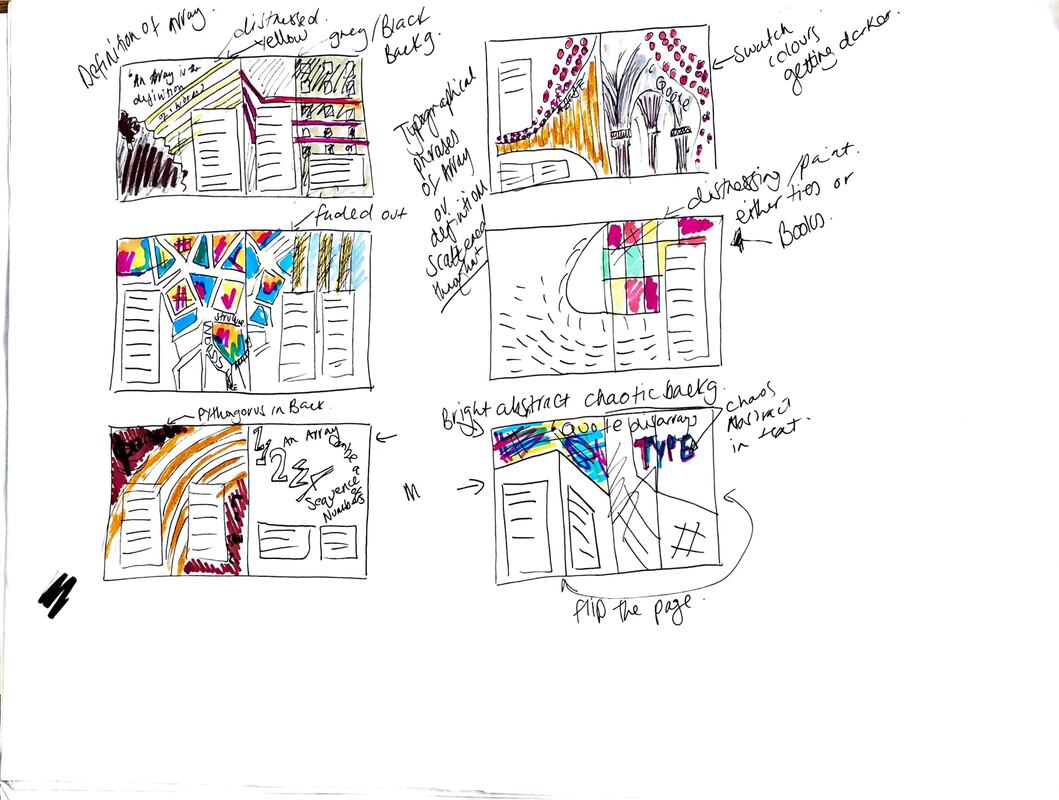 Definition of Array.
distressed.
yellow
grey/Black
Backg.
"An Array is the
definition
swatch
colours
getting darker.
Typographical
phrases
of Array
or
definition
scattered
throughout
Quote
faded out
structure
distressing / paint.
either ties or
Books.
Pythagorus in Back.
1, 2
An Array
can be
a
Sequence
of
Numbers
M
Bright abstract chaotic backg.
Quote
disarray
TYPE
chaos
Abstract
in text.
flip the page.